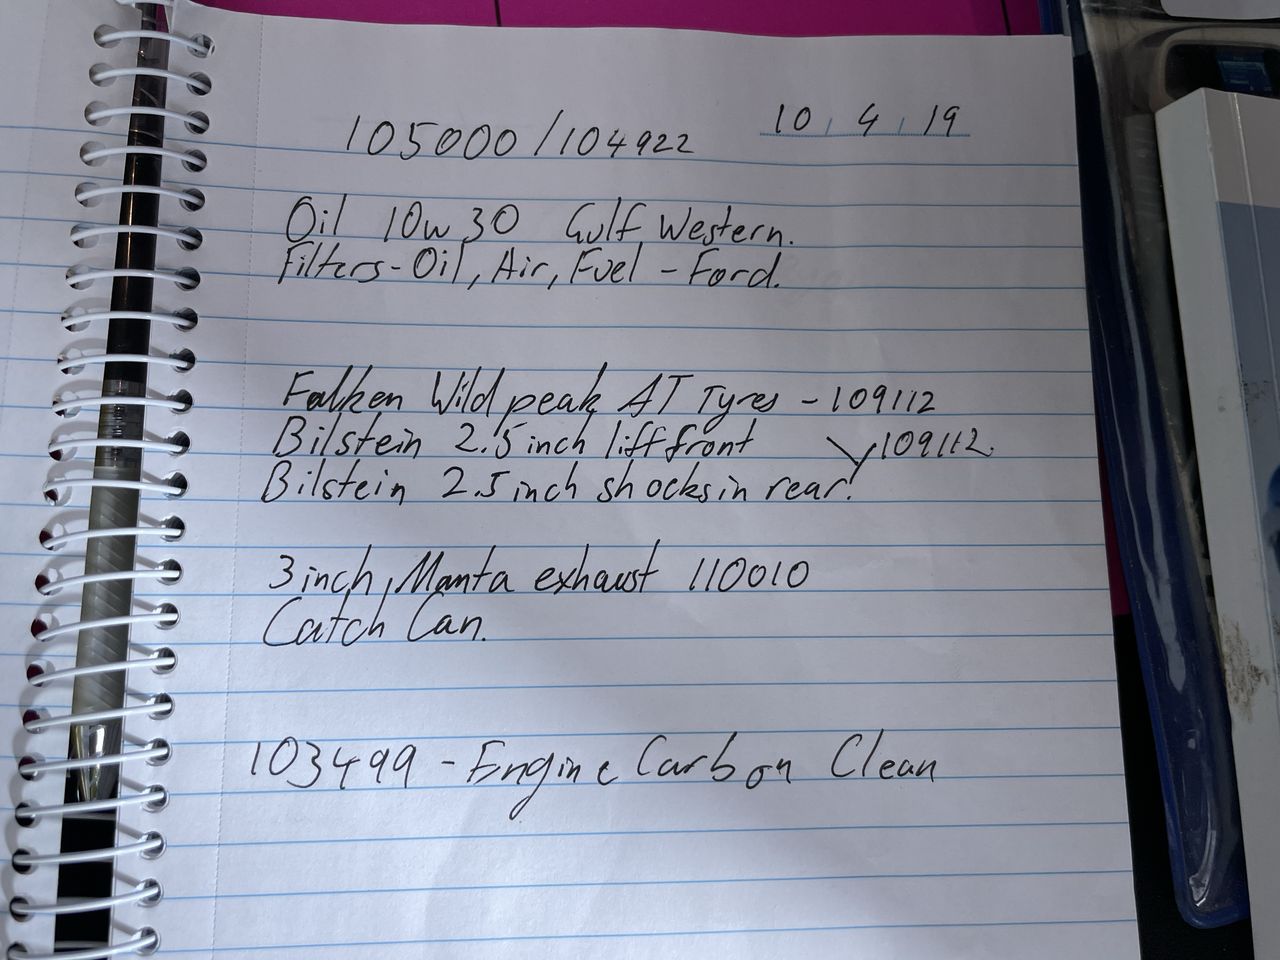 105000/104922 10/4/19
Oil 10w30 Gulf Western.
Filters-Oil, Air, Fuel - Ford.
Falken Wildpeak AT Tyres - 109112
Bilstein 2.5 inch lift front
109112.
Bilstein 2.5 inch shocks in rear.
3 inch, Manta exhaust 110010
Catch Can.
103499 - Engine Carbon Clean